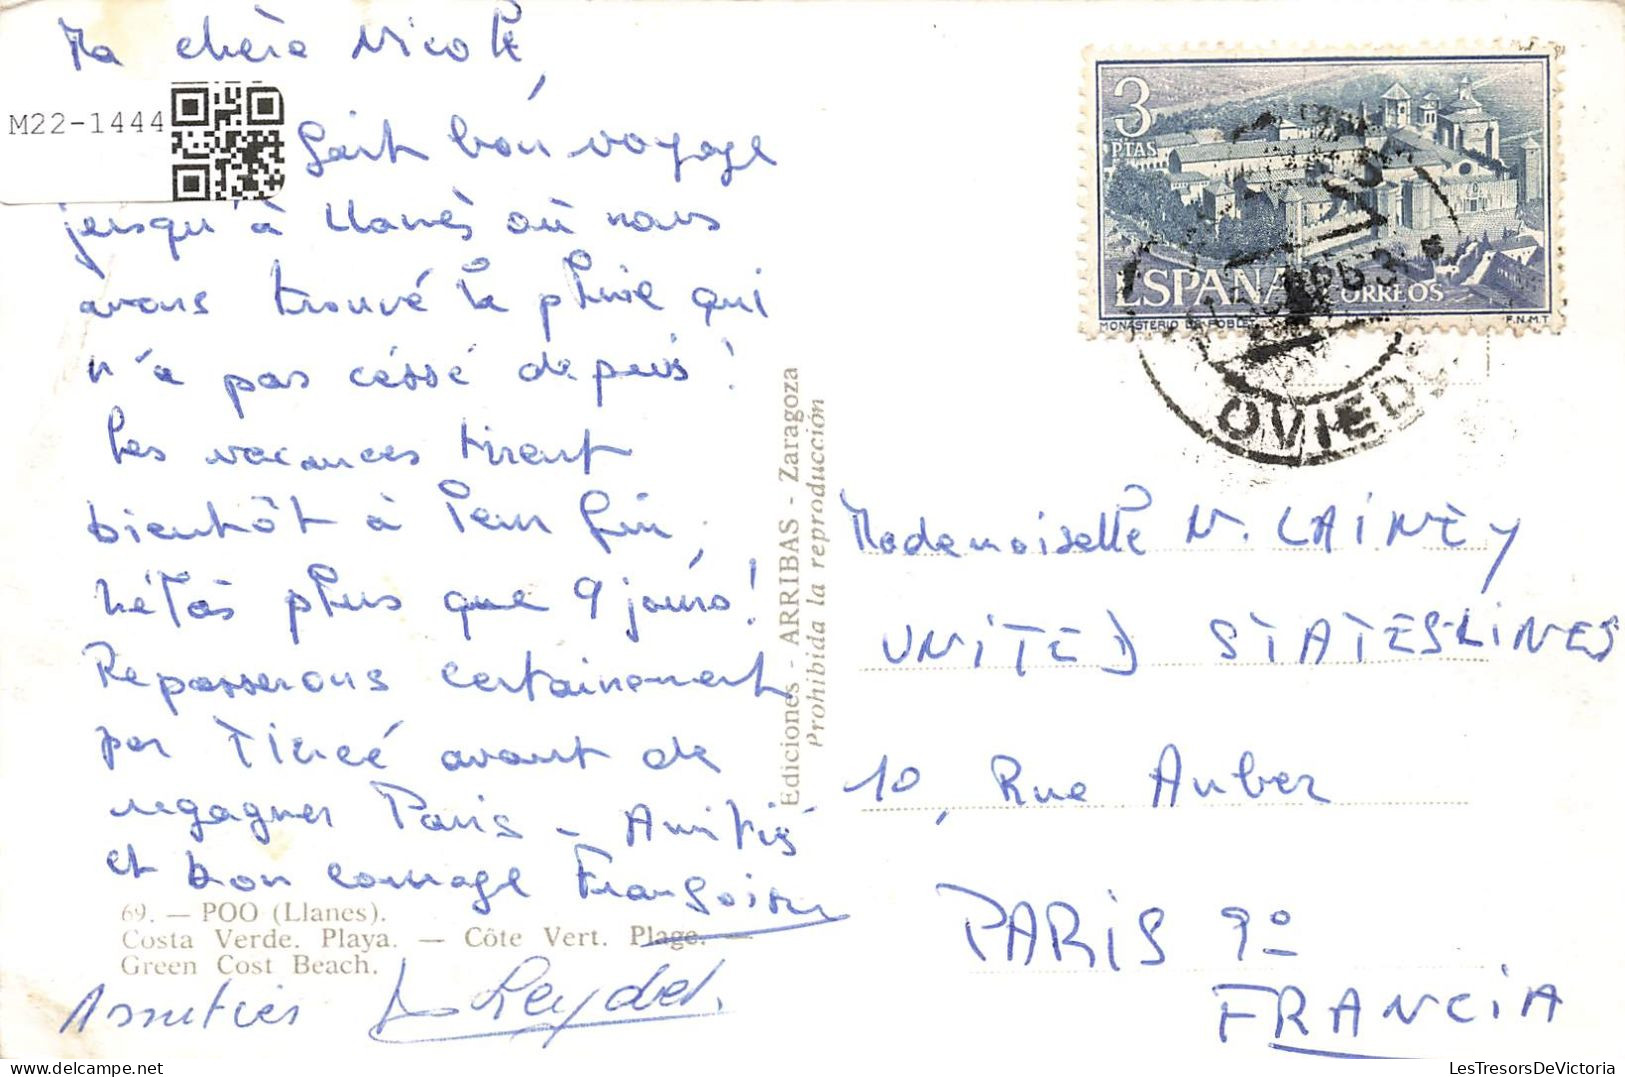 Ma chère Nicole,
M22-1444
fait bon voyage
jusqu'à Llanès où nous
avons trouvé la pluie qui
n'a pas céssé depuis !
Les vacances tirent
bientôt à leur fin,
hélas plus que 9 jours !
Repasserons certainement
par avant de
regagner Paris - Amitiés
et bon courage Françoise
69. — POO (Llanes).
Costa Verde. Playa. — Côte Vert. Plage. —
Green Cost Beach.
Amitiés
Ediciones - ARRIBAS - Zaragoza
Prohibida la reproducción
3
PTAS
ESPAÑA CORREOS
MONASTERIO DE POBLET F.N.M.T
OVIEDO
Mademoiselle N. LAINEY
UNITED STATES-LINES
10, Rue Auber
PARIS 9º
FRANCIA
LesTresorsDeVictoria